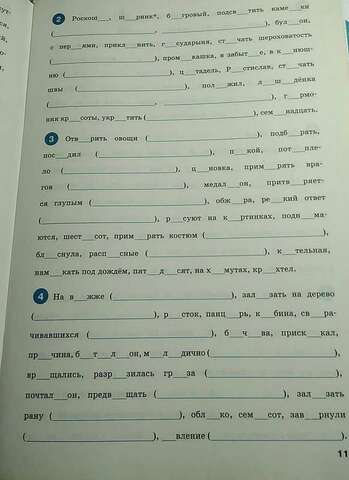 2 Роскош___, ш___ринк*, б___гровый, подсв___тить каме___ки
(_______________, _______________), бул___он,
с пер___ями, прикл___вить, г___сударыня, ст___чать шероховатость
(_______________), пром___вашка, в забыт___е, в к___нюш-
ню (_______________), ц___тадель, Р___стислав, ст___чать
швы (_______________), пол___жил, л___ш___дёнка
(_______________, _______________), г___рмо-
ния кр___соты, укр___тить (_______________), сем___надцать.
3 Отв___рить овощи (_______________), подб___рать,
нос___дил (_______________), п___кой, пот___пле-
ло (_______________), ц___новка, прим___рять вра-
гов (_______________), медал___он, притв___ряет-
ся глупым (_______________), обж___ра, ре___кий ответ
(_______________), р___суют на к___ртинках, подн___ма-
ются, шест___сот, прим___рять костюм (_______________),
бл___снула, расп___сные (_______________), к___тельная,
нам___кать под дождём, пят___д___сят, на х___мутах, кр___хтел.
4 На в___жже (_______________), зал___зать на дерево
(_______________), р___сток, панц___рь, к___бина, св___ра-
чивавшихся (_______________), б___ч___ва, приск___кал,
пр___чина, б___т___л___он, м___л___дично (_______________),
вр___щались, разр___зилась гр___за (_______________),
почтал___он, предв___щать (_______________), зал___зать
рану (_______________), обл___ко, сем___сот, зав___рнули
(_______________), ___вление (_______________).
11